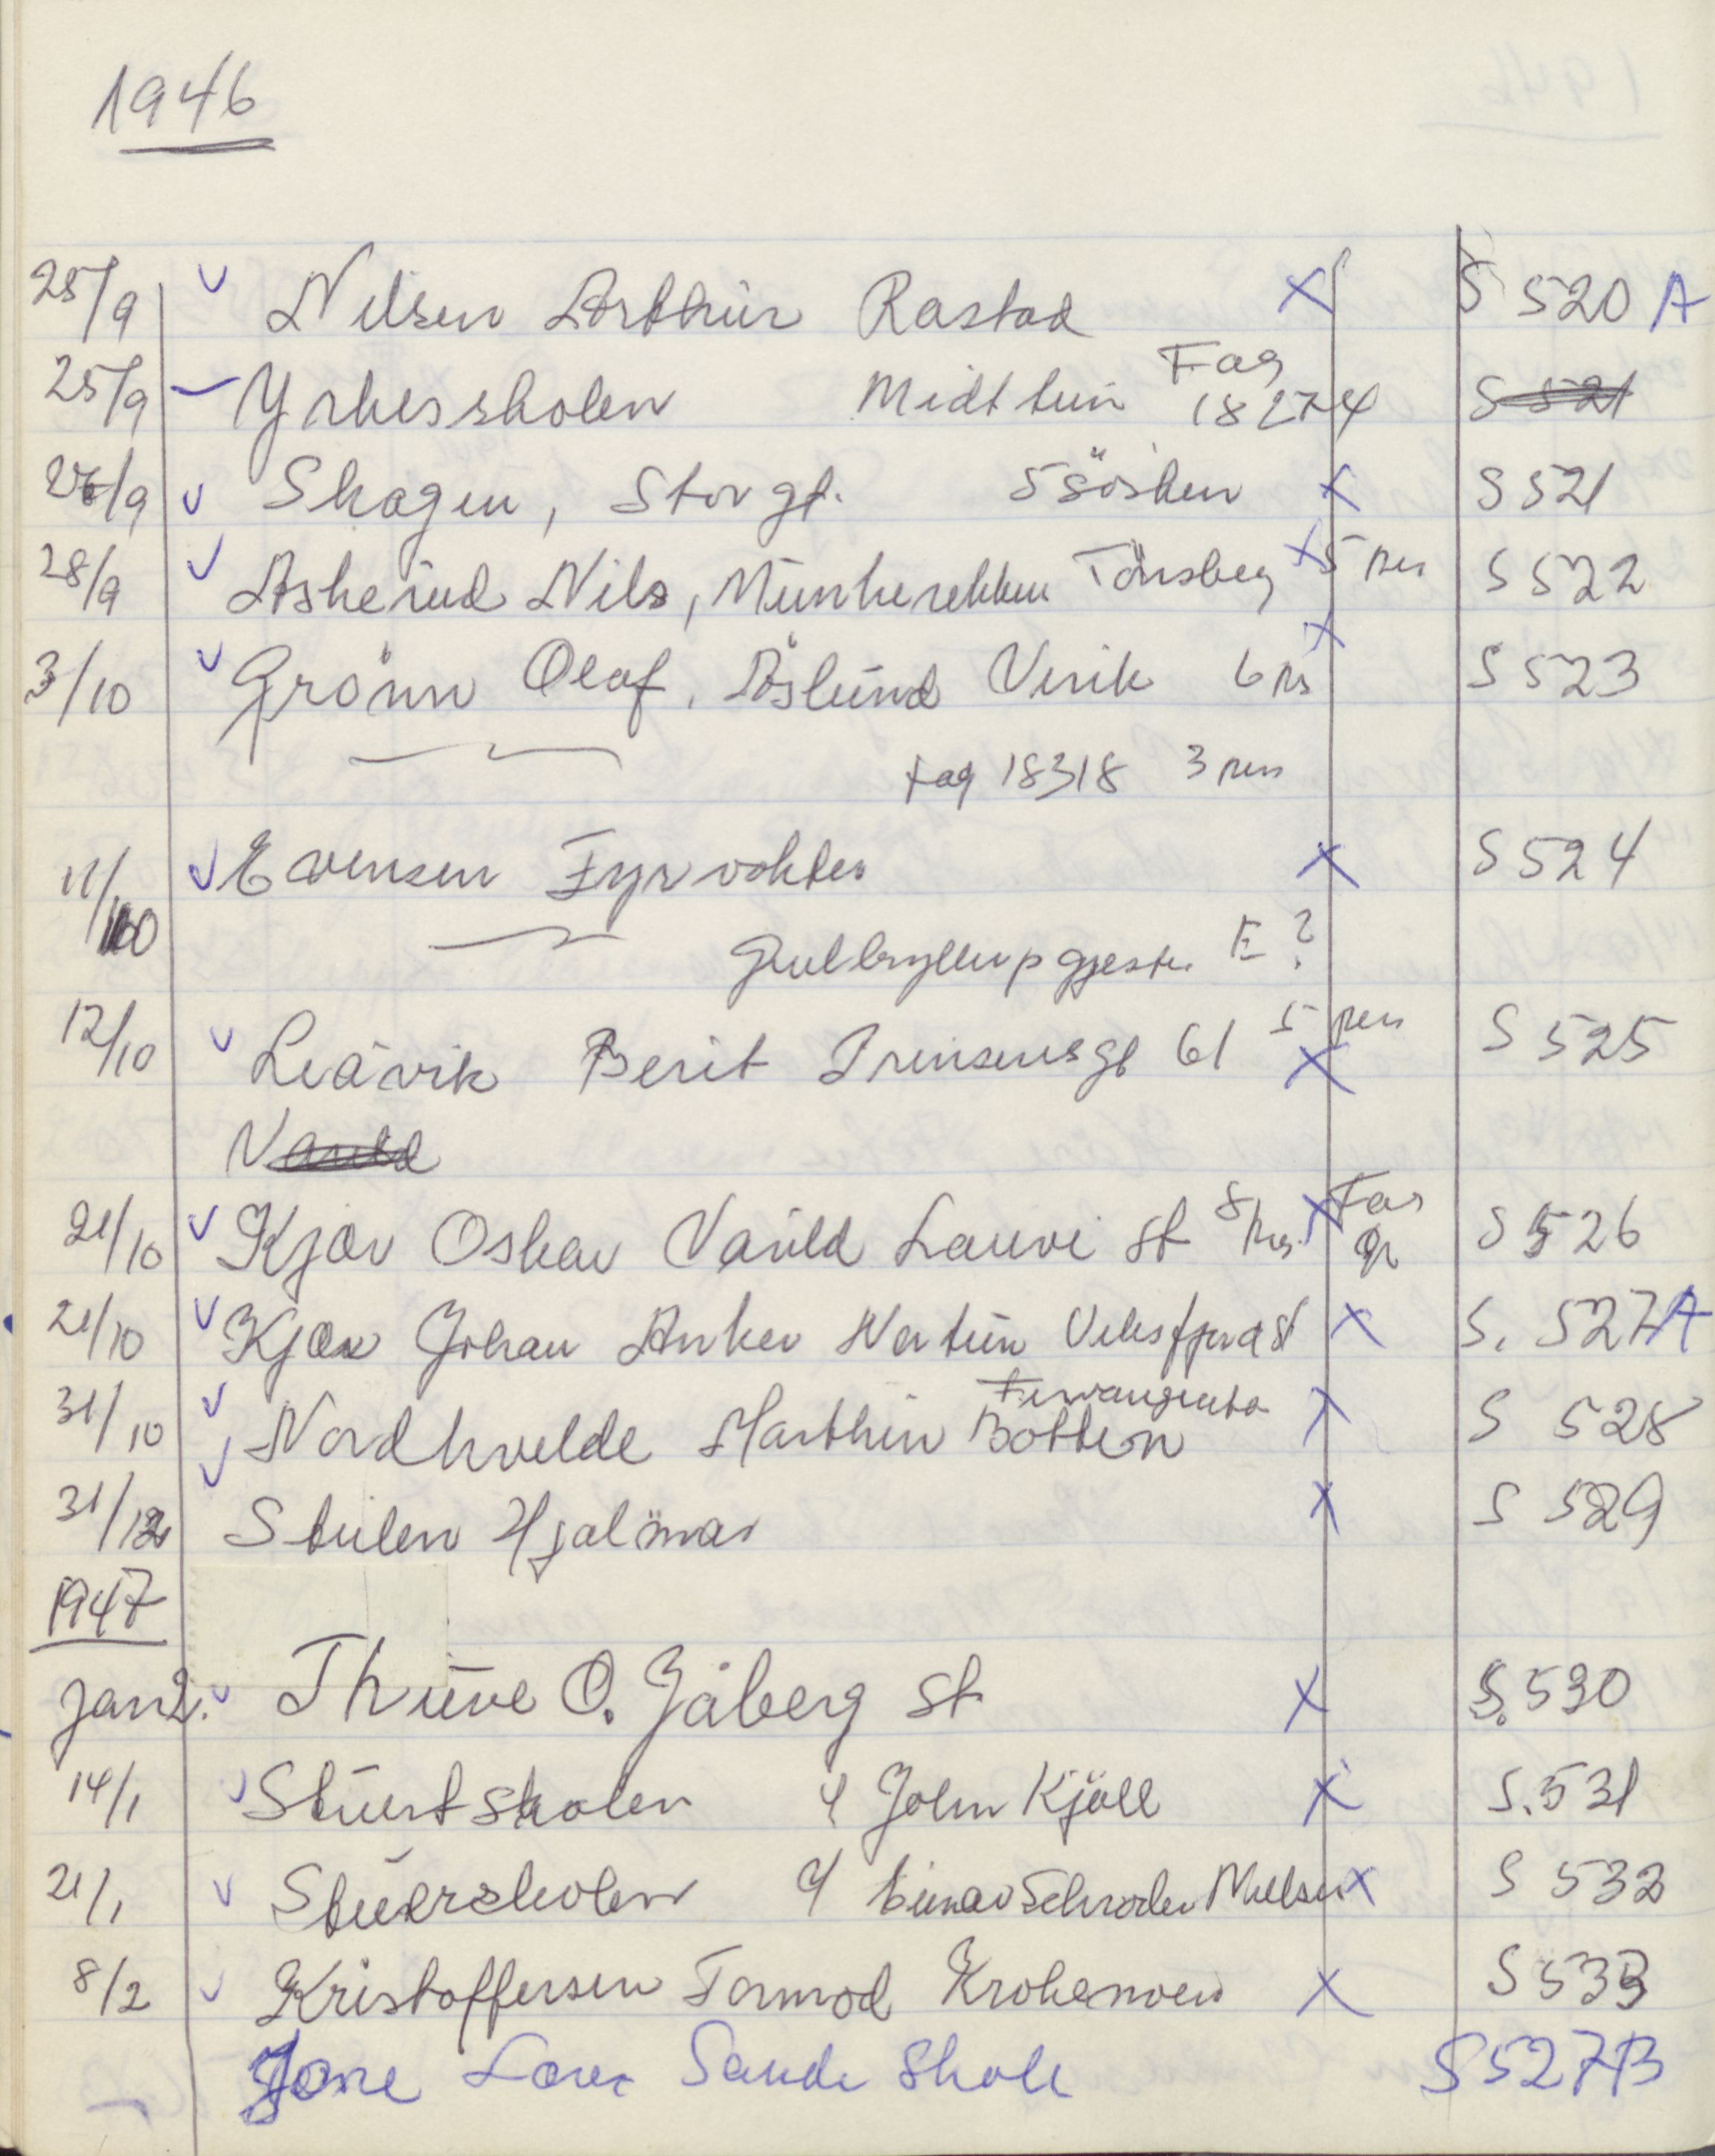 1946
25/9 Nilsen Arthur Rastad X S 520 A
25/9 Yrkesskolen Midttun Fag 18274 S 521
26/9 Skagen, Storgt. 5 sösken X S 521
28/9 Askerud Nils, Munkerekken Tönsberg X 5 pers S 522
3/10 Grönn Olaf, Åslund Virik 6 ps X S 523
Fag 18318 3 pers
11/10 Evensen Fyrvokter X S 524
Gullbryllup gjester E ?
12/10 Leåvik Berit Prinsensgt 61 5 pers X S 525
Nauld
21/10 Kjær Oskar Nauld Lauve st 8 prs. X Fag gr S 526
21/10 Kjær Johan Anker Nertun Veksfjord st X S. 527 A
31/10 Nordhvelde Marthin Botten X S 528
31/12 Stulen Hjalmar X S 529
1947
Jan 2. Thune O. Jåberg st X S. 530
14/1 Stuertskolen 4 John Kjöll X S. 531
21/1 Stuerskolen 4 Einar Schroder Nielsen X S 532
8/2 Kristoffersen Tormod Krokemoen X S 533
Sande Skole S 527 B